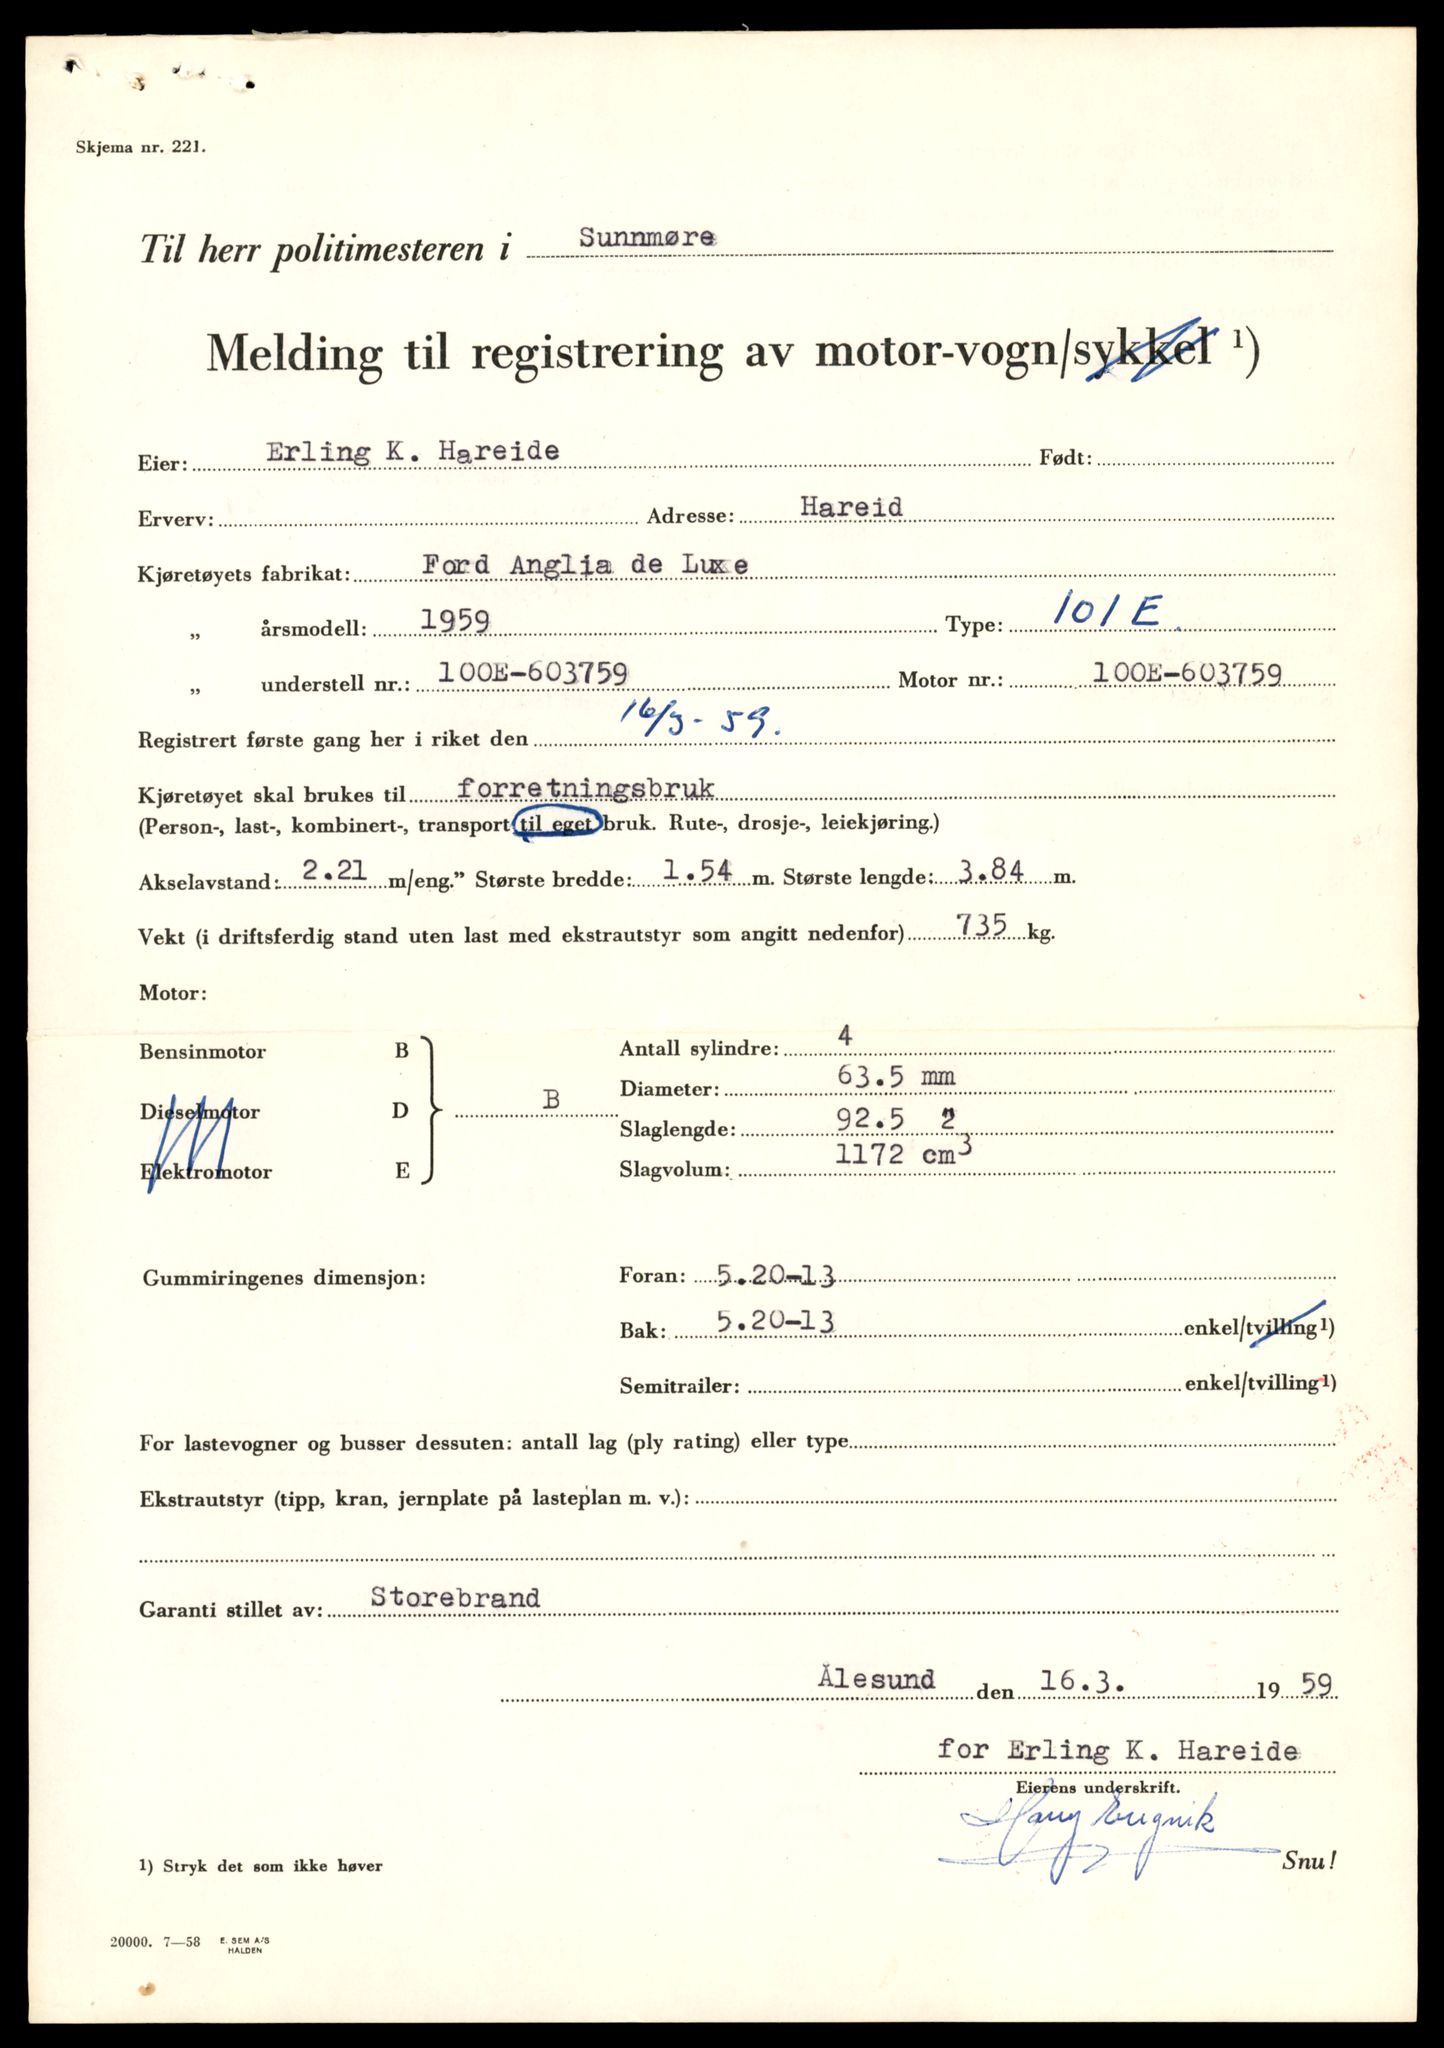 Skjema nr. 221.
Til herr politimesteren i Sunnmøre
Melding til registrering av motor-vogn/sykkel ¹)
Eier: Erling K. Hareide Født:
Erverv: Adresse: Hareid
Kjøretøyets fabrikat: Ford Anglia de Luxe
„ årsmodell: 1959 Type: 101E.
„ understell nr.: 100E-603759 Motor nr.: 100E-603759
Registrert første gang her i riket den 16/3-59.
Kjøretøyet skal brukes til forretningsbruk
(Person-, last-, kombinert-, transport til eget bruk. Rute-, drosje-, leiekjøring.)
Akselavstand: 2.21 m/eng.” Største bredde: 1.54 m. Største lengde: 3.84 m.
Vekt (i driftsferdig stand uten last med ekstrautstyr som angitt nedenfor) 735 kg.
Motor:
Bensinmotor B
Dieselmotor D
Elektromotor E
B
Antall sylindre: 4
Diameter: 63.5 mm
Slaglengde: 92.5 "
Slagvolum: 1172 cm³
Gummiringenes dimensjon: Foran: 5.20-13
Bak: 5.20-13 enkel/tvilling¹)
Semitrailer: enkel/tvilling¹)
For lastevogner og busser dessuten: antall lag (ply rating) eller type
Ekstrautstyr (tipp, kran, jernplate på lasteplan m. v.):
Garanti stillet av: Storebrand
Ålesund den 16.3. 19 59
for Erling K. Hareide
Eierens underskrift.
1) Stryk det som ikke høver
Snu!
20000. 7—58 E. SEM A/S
HALDEN